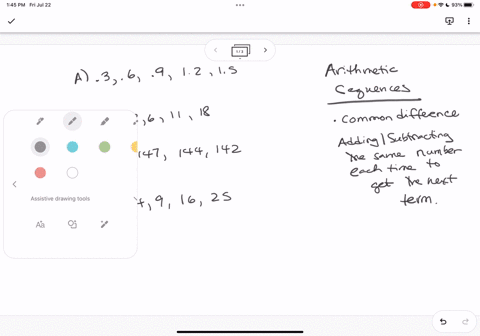 1:45 PM Fri Jul 22
93%
A) .3, .6, .9, 1.2, 1.5
,6, 11, 18
147, 144, 142
, 9, 16, 25
Assistive drawing tools
Arithmetic
Sequences
• Common diffecence
Adding/Subtracting
the same number
each time to
get the next
term.